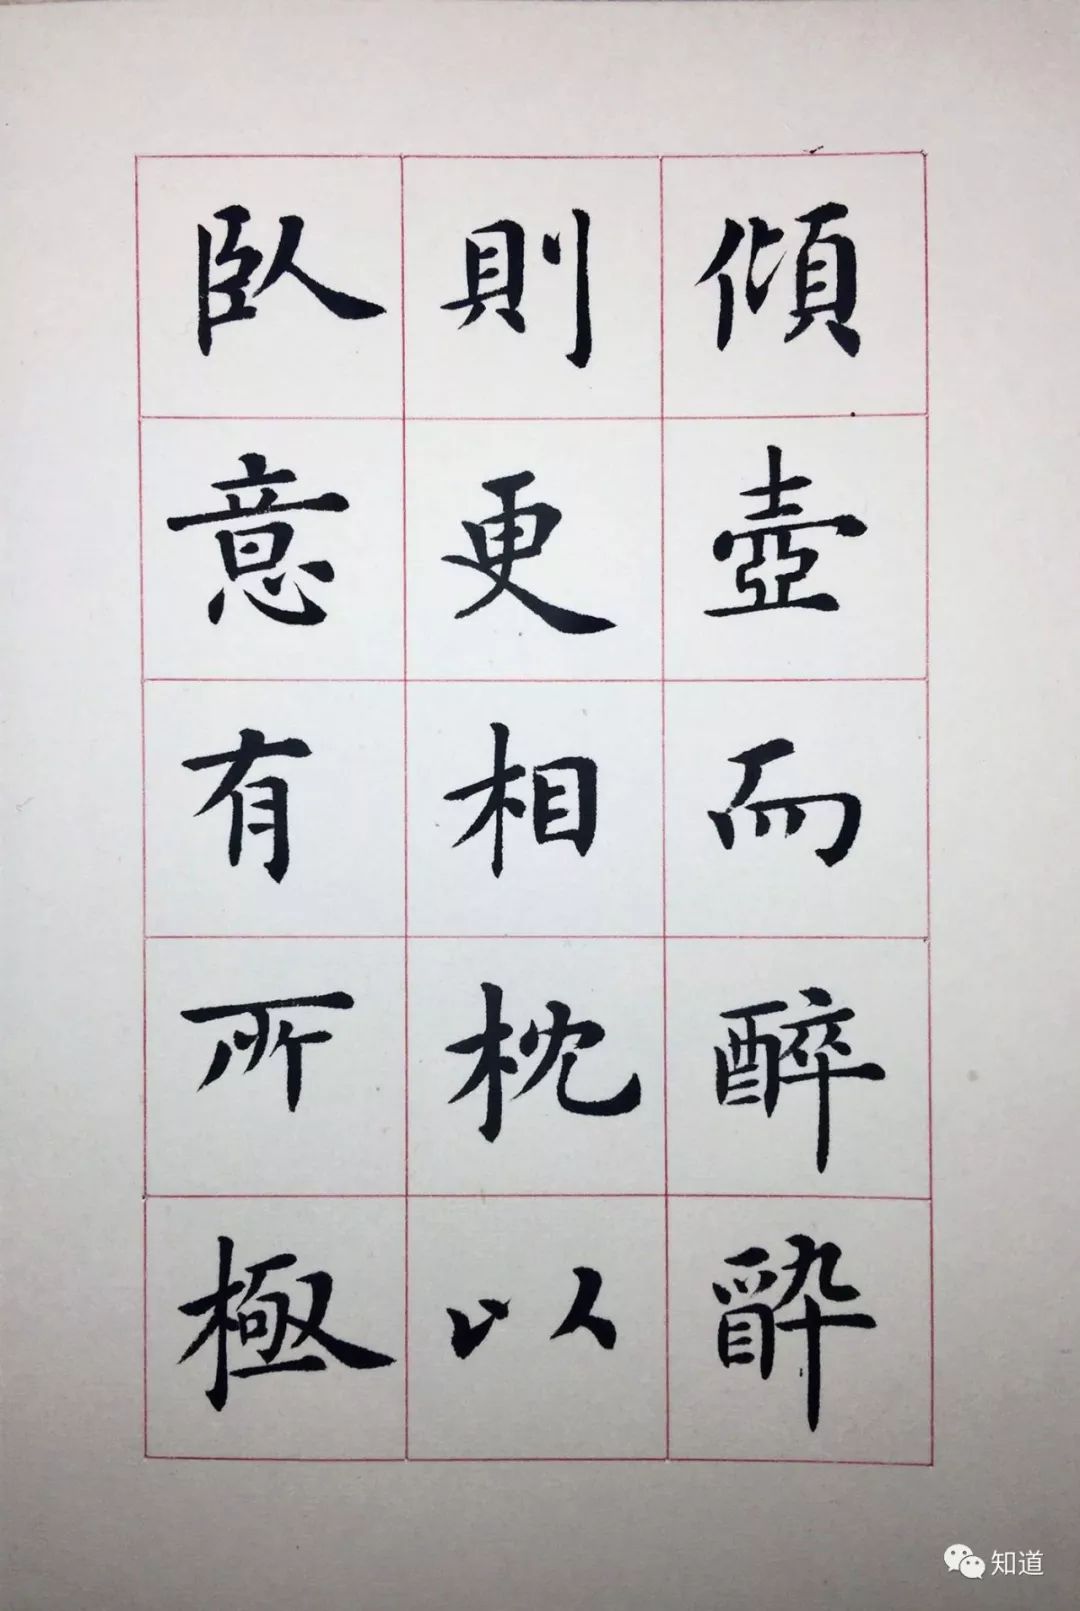 傾壺而醉酔
則更相枕以
臥意有所極
知道